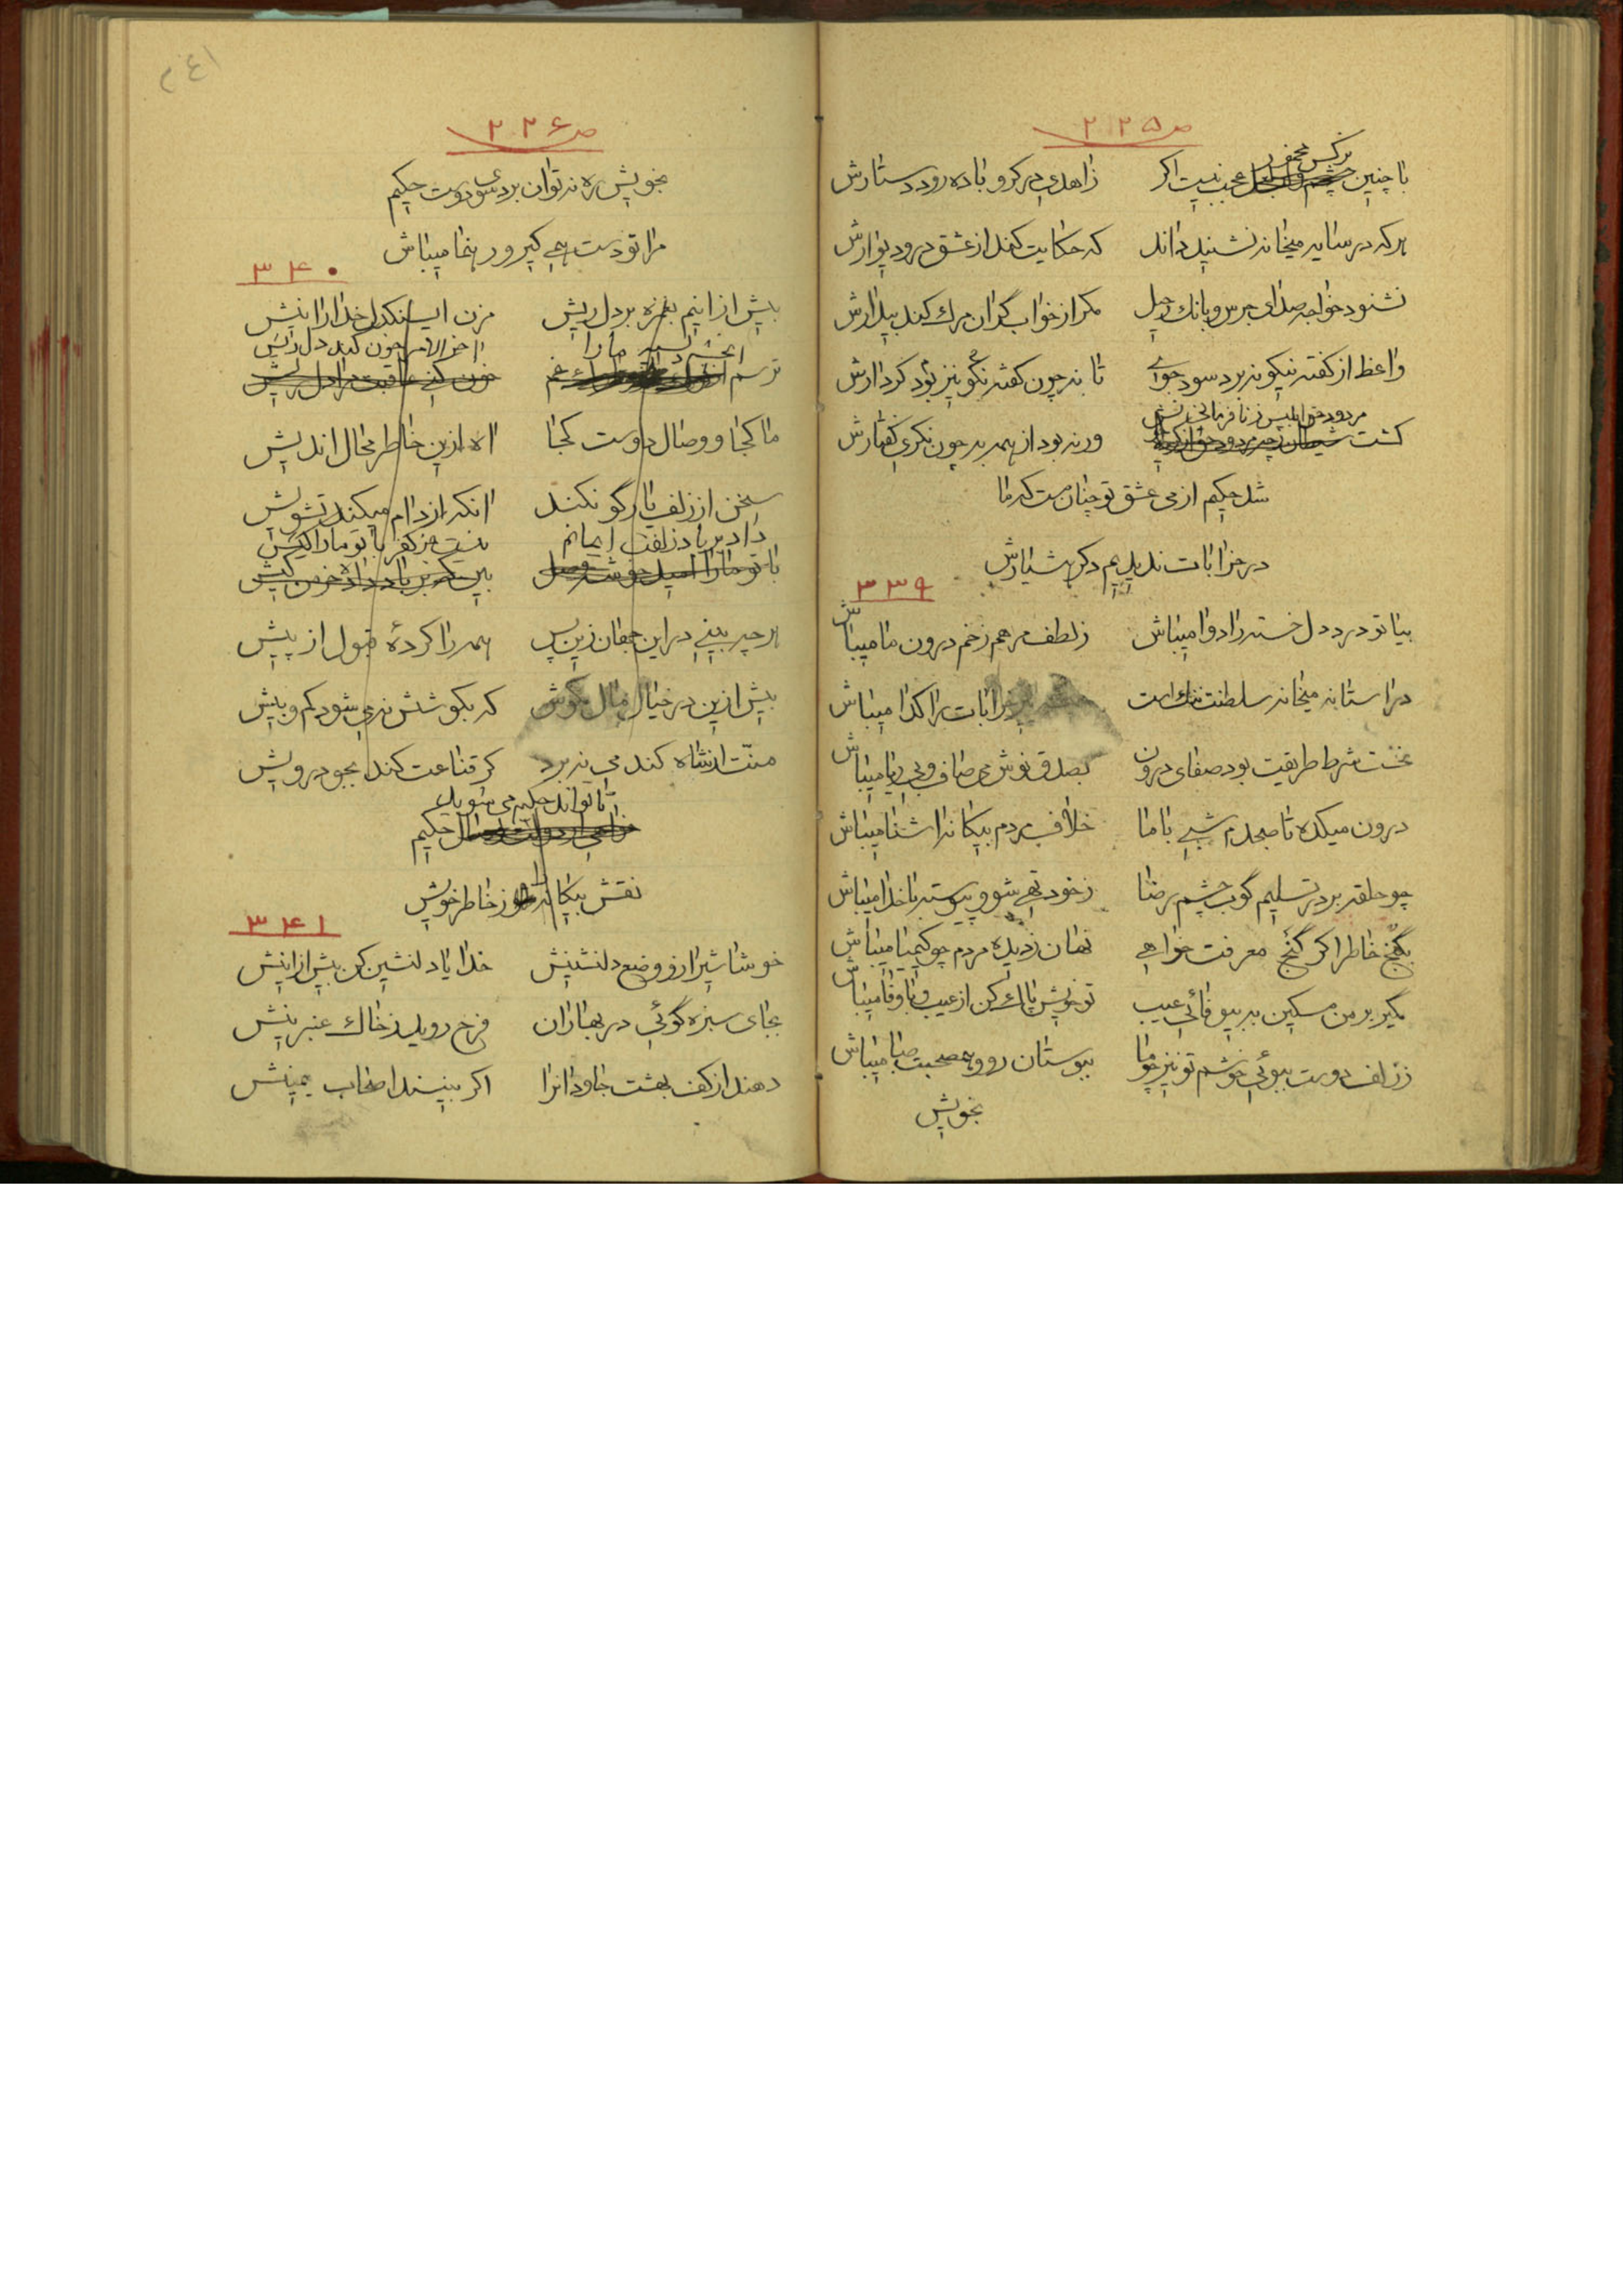 ص ۲۲۵
نرکس مخمور
با چنین چشم عجب نیست اکر زاهدی در کرو باده رود دستارش
هر که در سایه میخانه نشیند داند که حکایت کند از عشق در و دیوارش
نشنود خواجه صدای جرس و بانک رحیل مکر از خواب کران مرك کند بیدارش
واعظ از کفته نیکو نبرد سود جوی تا نه چون کفته نکو نیز بود کردارش
مردود حق ابلیس ز نافرمانی
کشت ورنه بود از همه به چون نکری کفتارش
شد حکیم از می عشق تو چنان مست که ما
در خرابات ندیدیم دکر هشیارش
۳۳۹
بیا تو درد دل خسته را دوا میباش ز لطف مرهم زخم درون ما میباش
در استانه میخانه سلطنت ننك است خرابات را کدا میباش
نخست شرط طریقت بود صفای درون بصدق نوش می صاف و بی ریا میباش
درون میکده تا صبحدم شبی با ما خلاف مردم بیکانه اشنا میباش
چو حلقه بر در تسلیم کوب چشم رضا ز خود تهی شو و پیوسته با خدا میباش
بکنج خاطر اکر کنج معرفت خواهی نهان ز دیده مردم چو کیمیا میباش
مکیر بر من مسکین به بیوفائی عیب تو خویش پاك کن از عیب و با وفا میباش
ز زلف دوست ببوئی خوشم تو نیز چو ما ببوستان رو و همصحبت صبا میباش
بخویش
ص ۲۲۶
بخویش ره نتوان برد سوی دوست حکیم
مرا تو دست همی کیر و رهنما میباش
۳۴۰
بیش از اینم بغمزه بر دل ریش مزن ای سنکدل خدا را نیش
انچشم سیه ما را اخر الامر خون کند دل ریش
ترسم غم خون کنی عاقبت مرا دل ریش
ما کجا و وصال دوست کجا اه ازین خاطر محال اندیش
سخن از زلف یار کو نکند انکه از دام میکند تشویش
داد بر باد زلفت ایمانم نیست جز کفر با تو ما را کیش
با تو ما را امید خوشه وصل بین که بر باد داده خرمن خویش
هر چه بینی در این جهان زین پس همه را کردهٔ قبول از پیش
بیش ازین در خیال مال مکوش که بکوشش نمی شود کم و بیش
منّت از شاه کندمی نبرد کر قناعت کند بجو درویش
تا تواند حکیم می شوید
حکیم
نقش بیکانه را ز خاطر خویش
۳۴۱
خوشا شیراز و وضع دلنشینش خدایا دلنشین کن بیش ازینش
بجای سبزه کوئی در بهاران فرح روید ز خاك عنبرینش
دهند از کف بهشت جاودانرا اکر بینند اصحاب یمینش